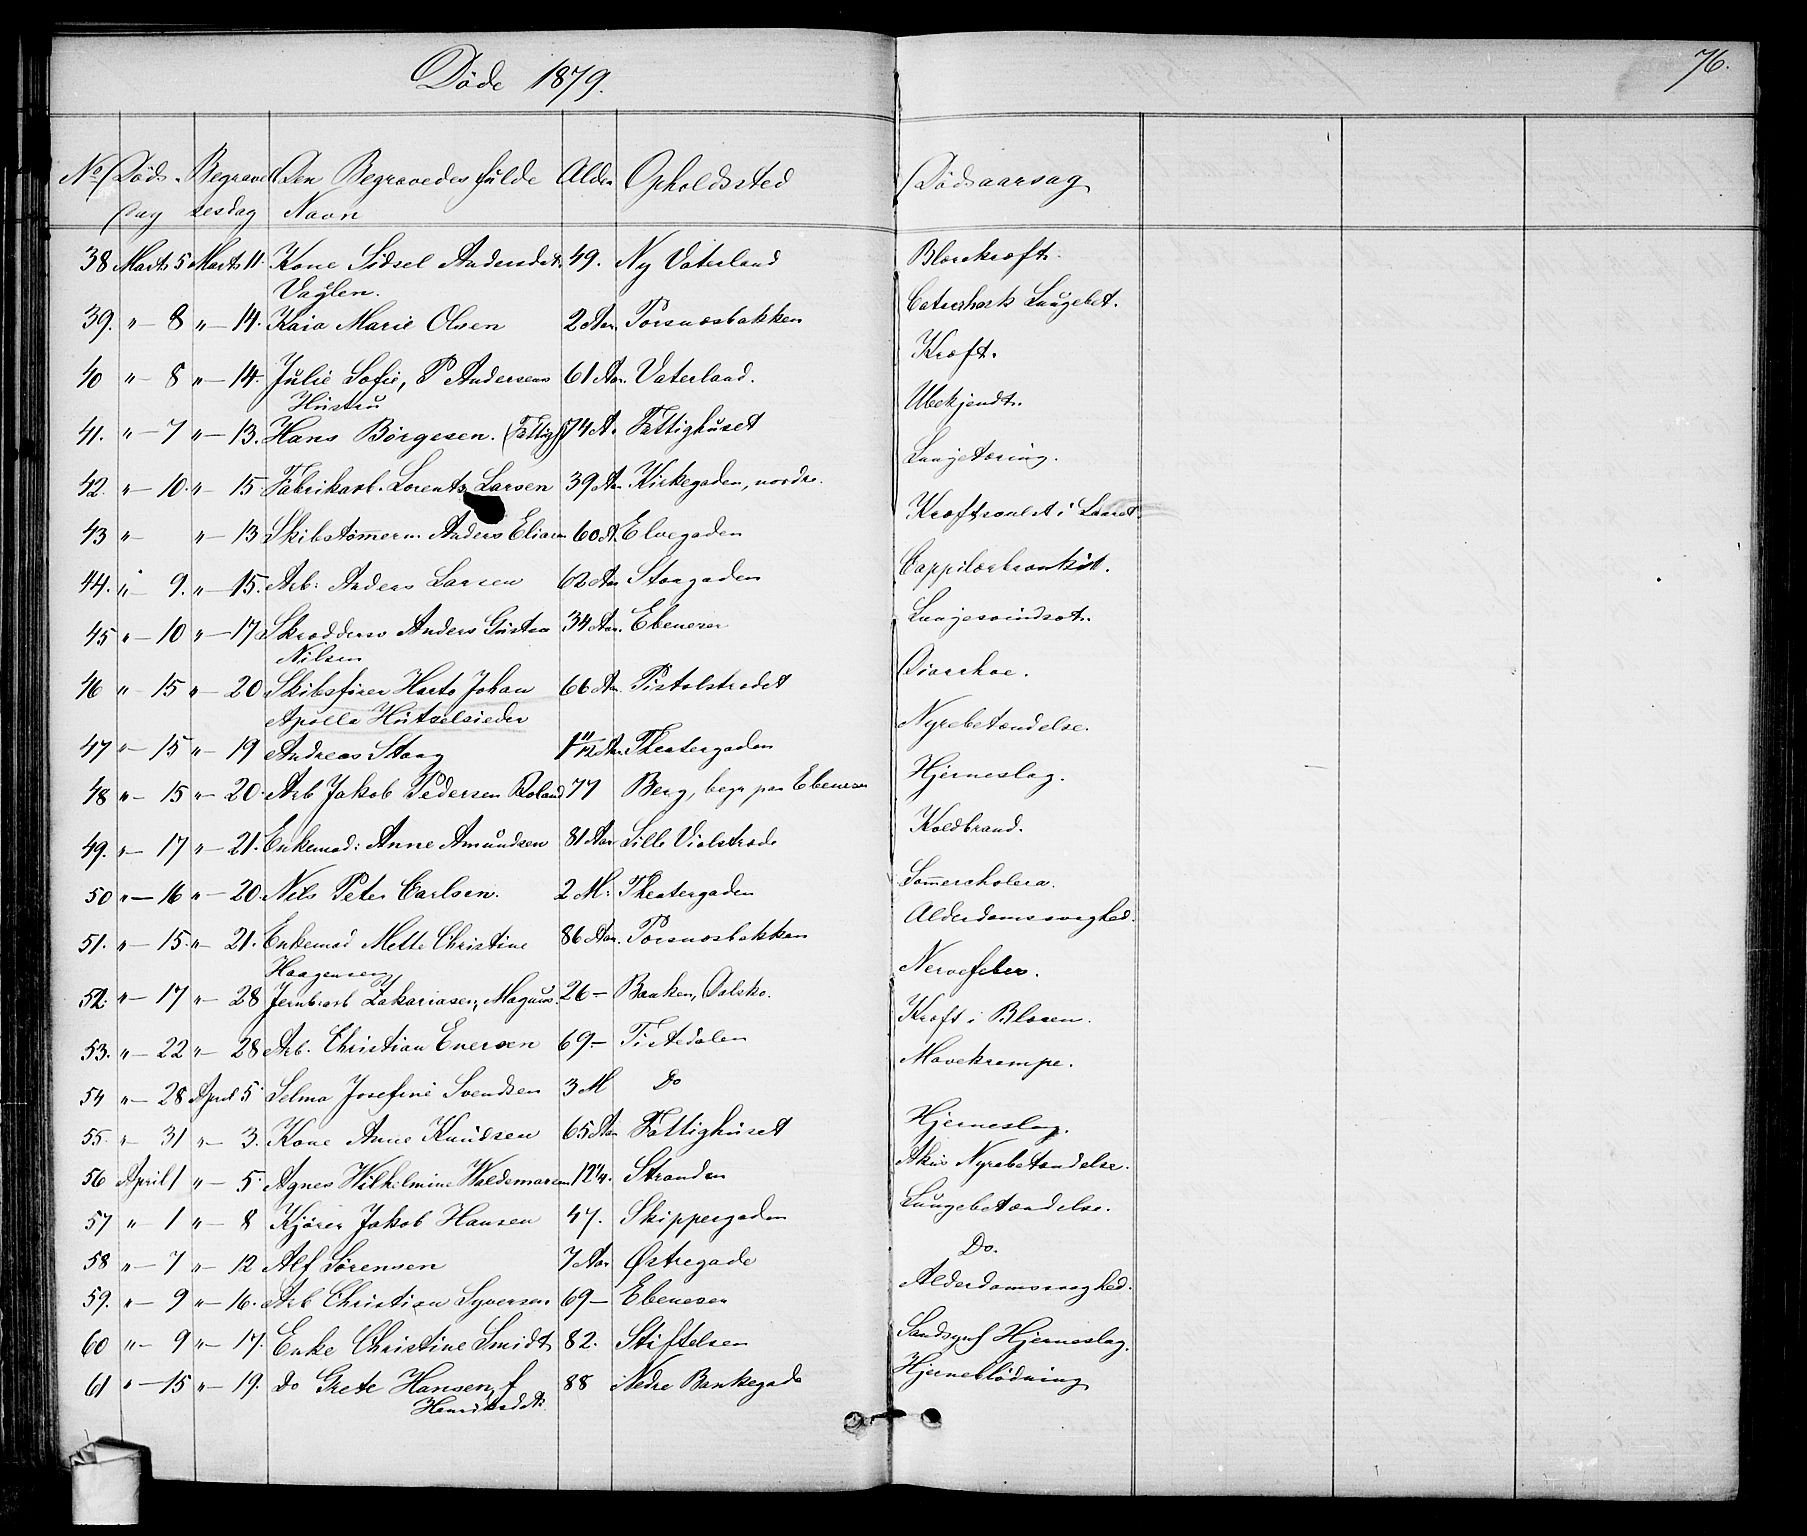 Døde 1879.
76.
No Døds- Begravel Den Begravedes fulde Alder Opholdssted Dødsaarsag
dag sesdag Navn
38 Marts 5 Marts 11. Kone Sidsel Andersdt. 49. Ny Vaterland Blærekræft.
Vaglen.
39. " 8 " 14. Kaia Marie Olsen 2 Aar. Torsnæsbakken Catarrhalsk Lungebet.
40 " 8 " 14. Julie Sofie, P Andersens 61 Aar. Vaterland. Kræft.
Hustru
41. " 7 " 13. Hans Børgesen. (Fattigl) 74 A. Fattighuset Ubekjendt.
42. " 10. " 15. Fabrikarb. Lorents Larsen 39 A. Kirkegaden, nordre. Lungetæring.
43 " " 13 Skibstømmerm. Anders Eliasen 60 A. Elvegaden Kræftsvulst i Laaret.
44. " 9. " 15. Arb: Anders Larsen 62 Aar Storgaden Cappilærbronkit.
45 " 10 " 17 Skrædders Anders Gustav 34 Aar. Ebeneser Lungesvindsot.
Nilsen
46 " 15 " 20 Skibsfører Johan 66 Aar. Pistolstrædet Diarrhoe.
Apollo
47 " 15 " 19 Andreas Staag 1 11/12 Aar. Theatergaden Nyrebetændelse.
48 " 15 " 20. Arb Jakob Pedersen Roland 77 Berg, begr paa Ebeneser Hjerneslag.
49. " 17 " 21. Enkemad: Anne Amundsen 81 Aar Lille Violstræde Koldbrand.
50 " 16 " 20. Nils Peter Carlsen. 2 M: Theatergaden Sommercholera.
51. " 15. " 21. Enkemad Mette Christine 86 Aar. Torsnæsbakken Alderdomssvaghed.
Haagensen
52. " 17 " 28 Jernbarb Zakariasen, Magnus. 26 Banken, Nervefeber.
53. " 22 " 28 Arb. Christian Evensen 69 Tistedalen Kræft i Blæren.
54 " 28 April 5 Selma Josefine Svendsen 3 M Do Mavekrampe.
55. " 31 " 3. Kone Anne Knudsen 65 Aar Fattighuset Hjerneslag.
56 April 1 " 5 Agnes Wilhelmine Waldemarsen 12 1/4. Stranden Akut Nyrebetændelse.
57 " 1 " 8 Kjører Jakob Hansen 47. Skippergaden Lungebetændelse.
58 " 7 " 12 Alf Sørensen 7 Aar Østregade Do.
59. " 9 " 16. Arb Christian Syversen 69 Ebeneser Alderdomssvaghed.
60 " 9 " 17. Enke Christine Smidt 82. Stiftelsen Hjerneslag.
61 " 15 " 19. Do Grete Hansen, f 88 Nedre Bankegade Hjerneblødning
Henriksdt.